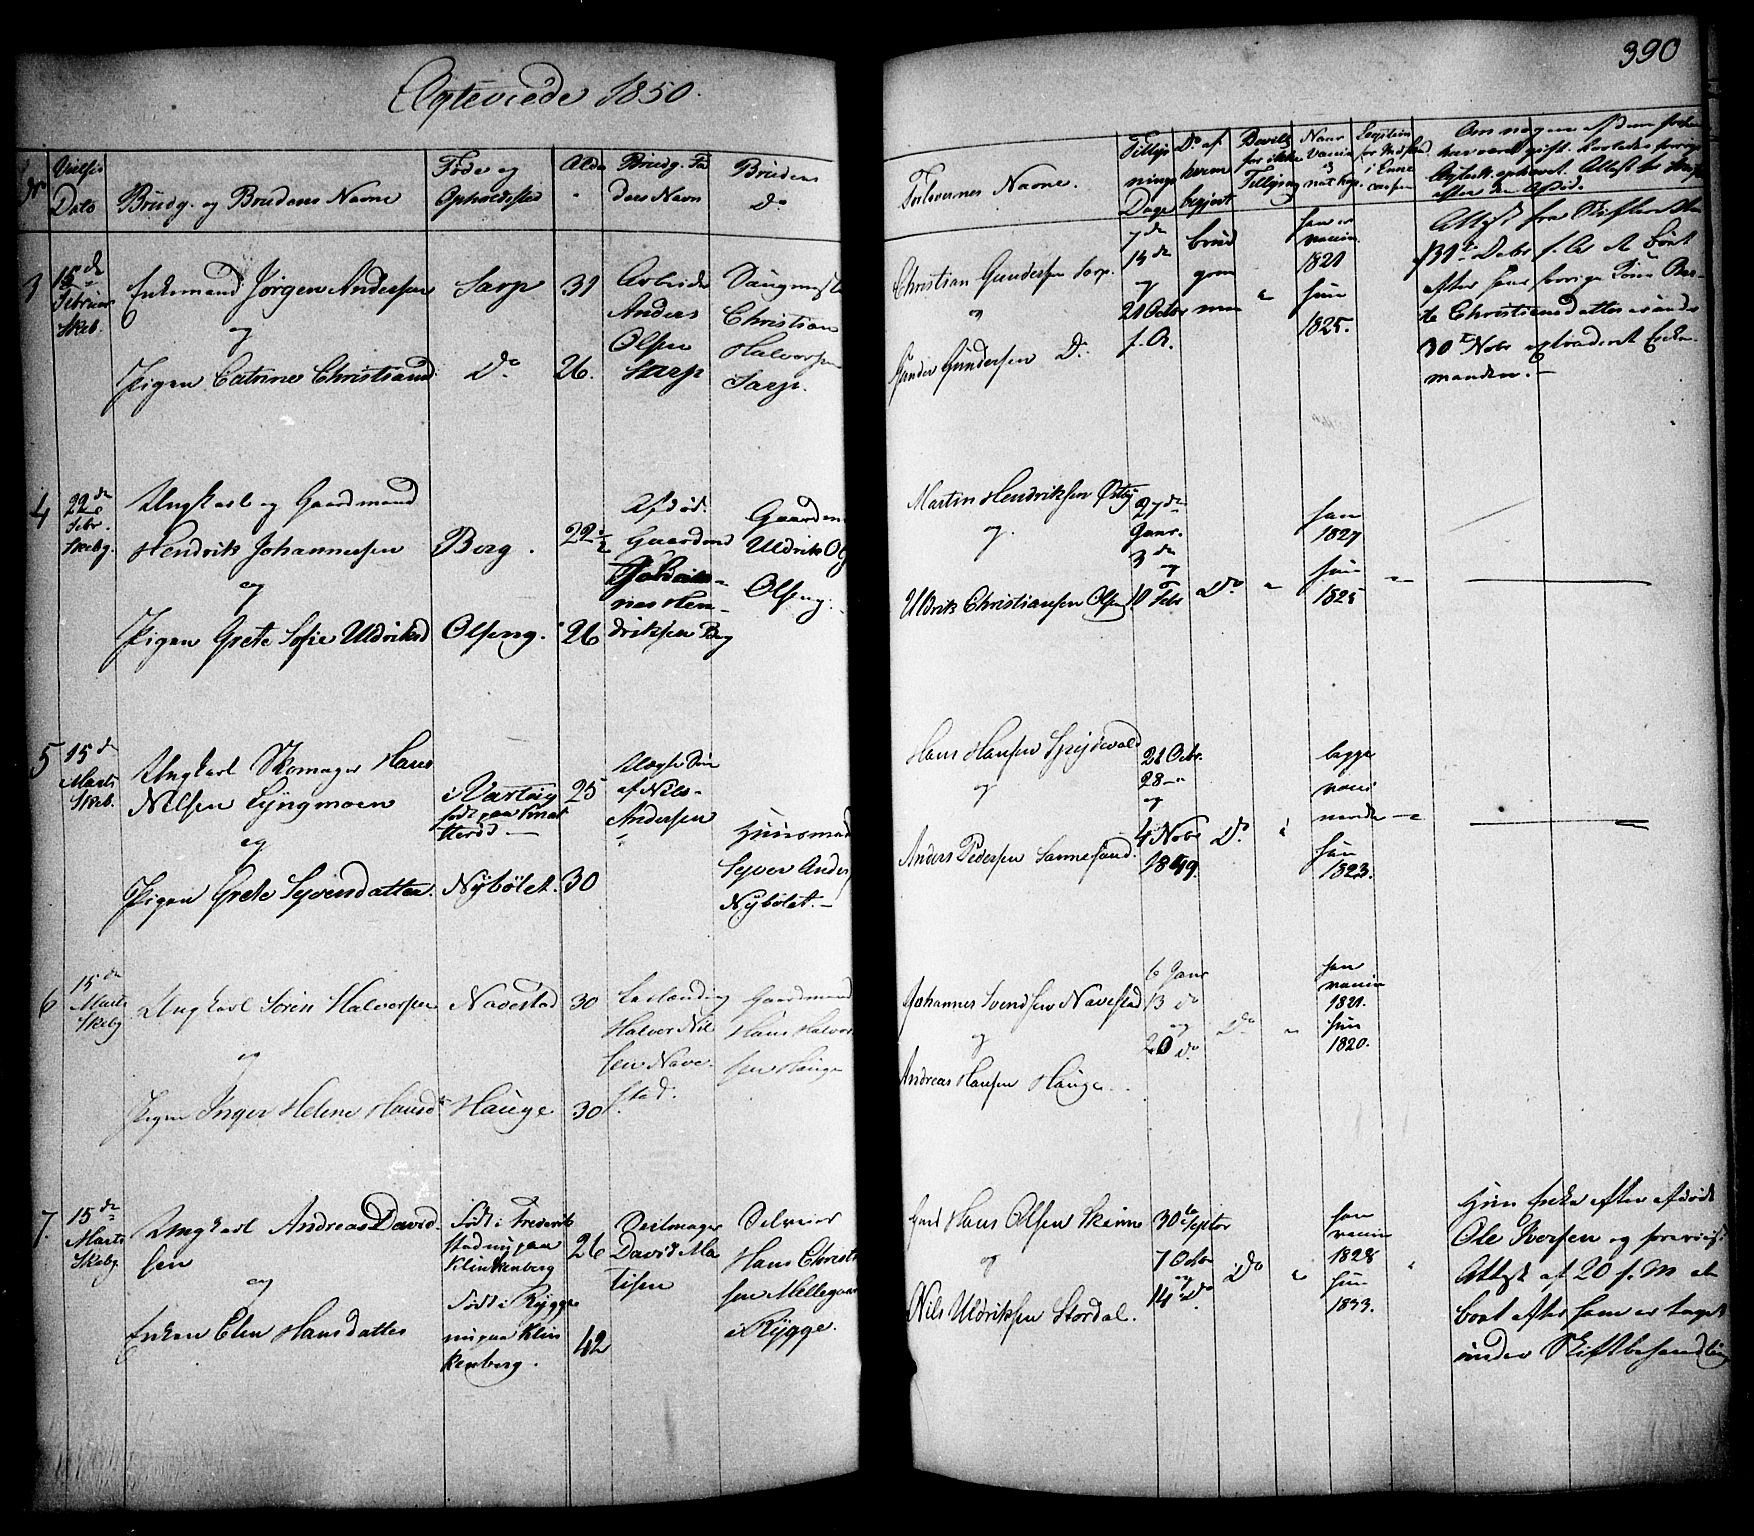 Ægteviede 1850.
390
No
Vielses
Dato
Brudg. og Brudens Navne
Føde og
Opholdssted
Alder
Brudg. Fa
ders Navn
Brudens
Do
Forlovernes Navne.
Tillys
nings
Dage
Do af
hvem
begjert
Bevill.
for ikke
Tillysning
Naar
vaccin
og
nat. kop.
Om nogen af dem forhen
har været gift
3
15de
Februar
Skeb.
Enkemand Jørgen Andersen
og
Pigen Catrine Christiansd:
Sarp
Do
31
26.
Arbeider
Anders
Olsen
Sarp
Saugmest
Christian
Halvorsen
Sarp.
Christian Gundersen Sarp.
og
Gunder Gundersen Do:
7de
14de
og
21 Octbr
f. A.
brud
gom
men
han er
vaccin
1821
hun
1825.
Attest fra Skifteretten
31te Decbr f. A. at Boet
efter hans forrige Kone An-
te Christiansdatter er under
30te Novbr extraderet Enke-
manden. -
4
22de
Febr.
Skebg.
Ungkarl og Gaardmand
Hendrik Johannesen
og
Pigen Grete Sofie Uldriksd
Berg.
Olseng.
22 1/2
26
Afdød.
Gaardmd
Johan-
nes Hen-
driksen Berg
Gaardm
Uldrik Ol
Olseng.
Martin Hendriksen Østby
og.
Uldrik Christiansen Olseng
27de
Janr.
3de
og
10 Febr
Do
han
1827
hun
1825
5
15de
Marts
Skeb.
Ungkarl Skomager Hans
Nilsen Lyngmoen
og
Pigen Grete Syversdatter.
i Varteig
født paa Smat
terød
Nybølet.
25
30
Uægte Søn
af Nils
Andersen
Huusmand
Syver Anders
Nybølet. -
Hans Hansen Spydevold
og
Anders Pedersen Sannesund.
21 Octbr.
28 - "
og
4 Novbr
1849.
Do
begge
vacci
nerede
hun
1823.
6
15de
Marts
Skebg
Ungkarl Søren Halvorsen
og
Pigen Inger Helene Hansd:
Navestad
Hauge
30
30
Halvor Nil
sen Nave-
stad.
Gaardmand
Hans Halvor
sen Hauge
Johannes Svendsen Navestad
og
Andreas Hansen Hauge.
6 Janr
13 do
og
20 do
Do
han
vaccin
1821.
hun
1820.
7.
15de
Marts
Skebg
Ungkarl Andreas David
sen
og
Enken Elen Hansdatter
Født i Frederik
stad nu paa
Klinkenberg
Født i Rygge
nu paa Klin
kenberg.
26
42
David Ma
tisen
Selveier
Hans Christi
sen Mellegaar
i Rygge.
Hans Olsen Skinne
og
Nils Uldriksen Stordal.
30te Septbr
7 Octbr
og
14 do
Do
han
vaccin
1828
hun
1833.
Hun Enke efter afdøde
Ole Iversen og foreviist
Attest af 20 f. M. at
Boet efter ham er taget
under Skiftebehandling